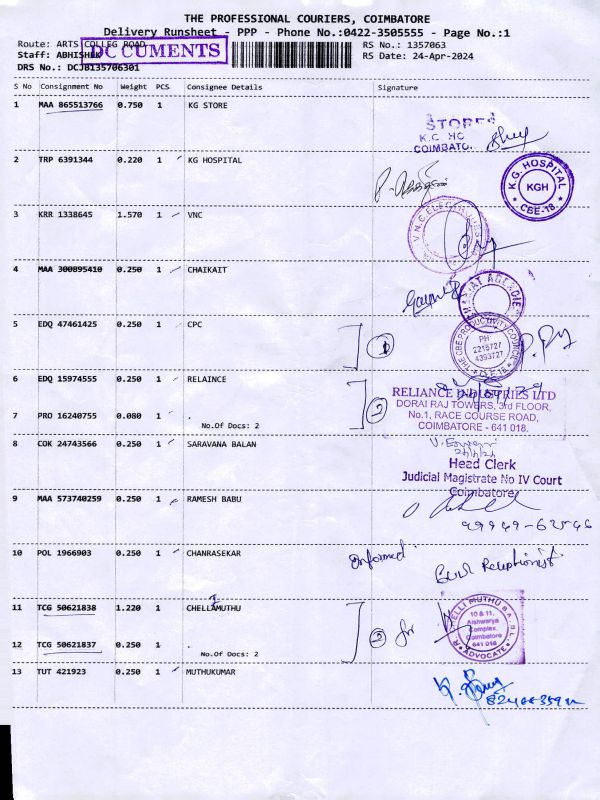 THE PROFESSIONAL COURIERS, COIMBATORE
Delivery Runsheet - PPP - Phone No.:0422-3505555 - Page No.:1
Route: ARTS COLLEG ROAD
DOCUMENTS
RS No.: 1357063
Staff: ABHISHEK
RS Date: 24-Apr-2024
DRS No.: DCJB135706301
S No Consignment No Weight PCS Consignee Details Signature
1 MAA 865513766 0.750 1 KG STORE
STORES
COIMBATO
2 TRP 6391344 0.220 1 KG HOSPITAL
K.G. HOSPITAL
KGH
CBE-18.
3 KRR 1338645 1.570 1 VNC
4 MAA 300895410 0.250 1 CHAIKAIT
5 EDQ 47461425 0.250 1 CPC
THE CBE PRODUCTIVITY COUNCIL
PH:
2215727
4393727
CBE-18
6 EDQ 15974555 0.250 1 RELAINCE
RELIANCE INDUSTRIES LTD
DORAI RAJ TOWERS, 3rd FLOOR,
No.1, RACE COURSE ROAD,
COIMBATORE - 641 018.
7 PRO 16240755 0.080 1 .
No.Of Docs: 2
8 COK 24743566 0.250 1 SARAVANA BALAN
Head Clerk
Judicial Magistrate No IV Court
Coimbatore
9 MAA 573740259 0.250 1 RAMESH BABU
10 POL 1966903 0.250 1 CHANRASEKAR
Informed
Receptionist
11 TCG 50621838 1.220 1 CHELLAMUTHU
for
CHELLI MUTHU B.A. B.L.
10 & 11,
Aishwarya
Complex,
Coimbatore
641 018
ADVOCATE
12 TCG 50621837 0.250 1 .
No.Of Docs: 2
13 TUT 421923 0.250 1 MUTHUKUMAR